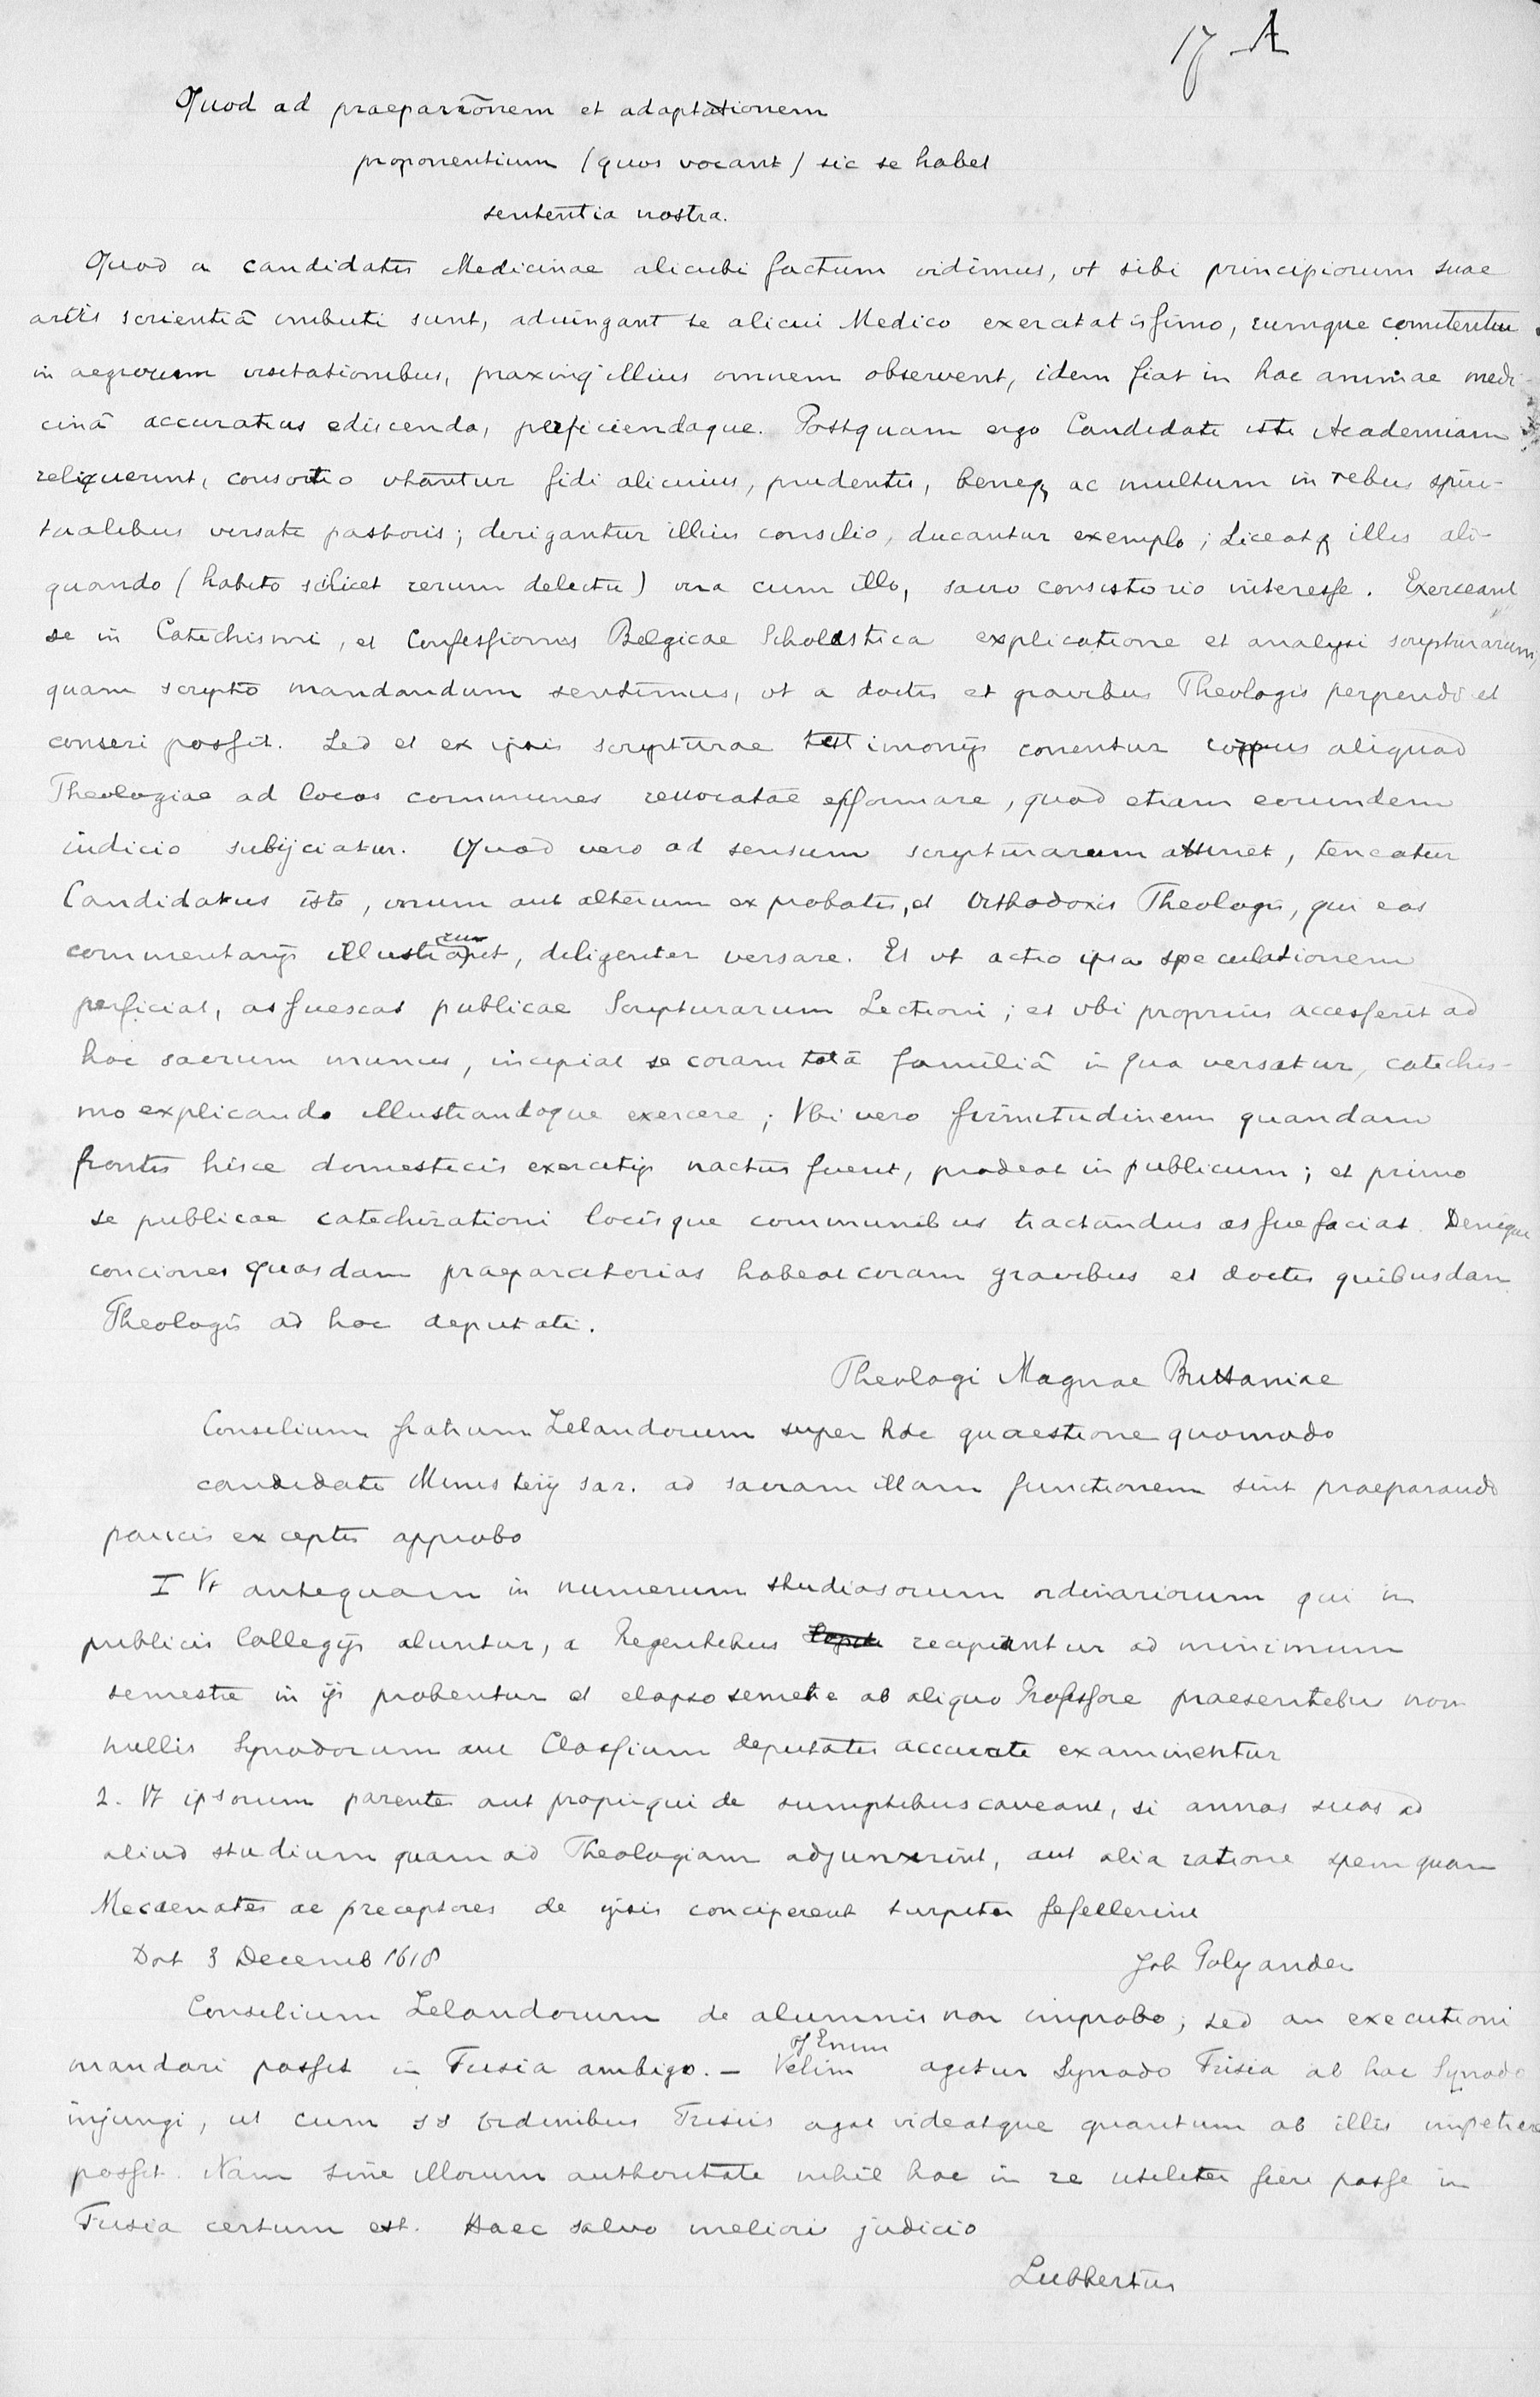 17 A
Quod ad praeparōnem et adaptationem
proponentium (quos vocant) sic se habet
sententia nostra.
Quod a candidatis Medicinae alicubi factum vidimus, ut sibi principiorum suae
artis scientiâ imbuti sunt, adiungant se alicui Medico exercitatissimo, eumque comitentur
in aegrorum visitationibus, praxinq illius omnem observent, idem fiat in hac animae medi-
cinâ accuratius ediscenda, perficiendaque. Postquam ergo Candidati isti Academiam
reliquerint, consortio utantur fidi alicuius, prudentis, beneq ac multum in rebus spiri-
tualibus versati pastoris; dirigantur illius consilio, ducantur exemplo; Liceatq illis ali-
quando (habito scilicet rerum delectu) una cum illo, sacro consistorio interesse. Exerceant
se in Catechismi, et Confessionis Belgicae Scholastica explicatione et analysi scripturarum,
quam scripto mandandum sentimus, ut a doctis et gravibus Theologis perpendi et
conseri possit. Sed et ex ipsis scripturae testimonijs conentur corpus aliquod
Theologiae ad locos communes reuocatae efformare, quod etiam eorundem
iudicio subijciatur. Quod vero ad sensum scripturarum attinet, teneatur
Candidatus iste, unum aut alterum ex probatis, et Orthodoxis Theologis, qui eas
commentarijs illustrarunt, diligenter versare. Et ut actio ipsa speculationem
perficiat, assuescat publicae Scripturarum Lectioni; et ubi proprius accesserit ad
hoc sacrum munus, incipiat se coram totâ familiâ in qua versatur, catechis-
mo explicando illustrandoque exercere; Vbi vero firmitudinem quandam
frontis hisce domesticis exercitijs nactus fuerit, prodeat in publicum; et primo
se publicae catechizationi locisque communibus tractandus assuefaciat. Denique
conciones quasdam praeparatorias habeat coram gravibus et doctis quibusdam
Theologis ad hoc deputati.
Theologi Magnae Brittaniae
Consilium fratrum Zelandorum super hac quaestione quomodo
candidati Ministerij sac. ad sacram illam functionem sint praeparandi
paucis exceptis approbo
I Vt antequam in numerum studiosorum ordinariorum qui in
publicis Collegijs aluntur, a Regentibus recipiantur ad minimum
semestre in ijs probentur et elapso semestre ab aliquo Professore praesentibus non
nullis Synodorum aut Classium deputatis accurate examinentur
2. Vt ipsorum parentes aut propinqui de sumptibus caveant, si annos suos ad
aliud studium quam ad Theologiam adjunxerint, aut alia ratione spem quam
Mecaenates ac preceptores de ipsis conciperent turpiter fefellerint
Dort 3 Decemb 1618 Joh Polyander
Consilium Zelandorum de alumnis non improbo; sed an executioni
mandari posset in Frisia ambigo. – Velim agetur Synodo Frisia ab hac Synodo
of Enim
injungi, ut cum ss Ordinibus Frisiis agat videatque quantum ab illis impetrare
possit. Nam sine illorum authoritate nihil hac in re utiliter fieri posse in
Frisia certum est. Haec salvo meliori judicio
Lubbertus